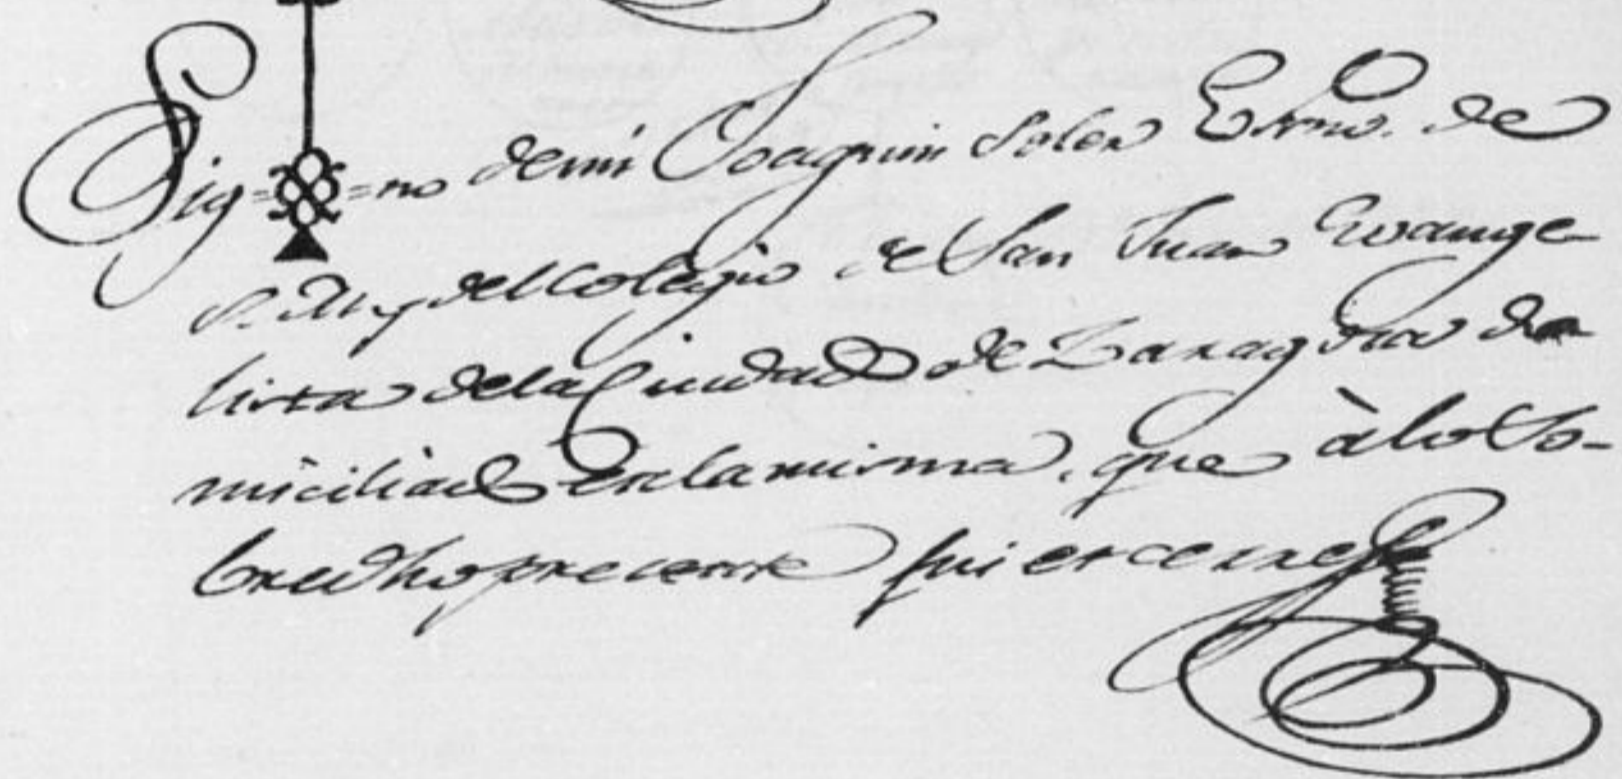 Sig= =no de mi Joaquin Soler Esno. de
S. M. y del Colegio de San Juan Evange-
lista dela Ciudad de Zaragoza do
miciliado en la misma, que à lo so-
bre dho presente fui et cerre